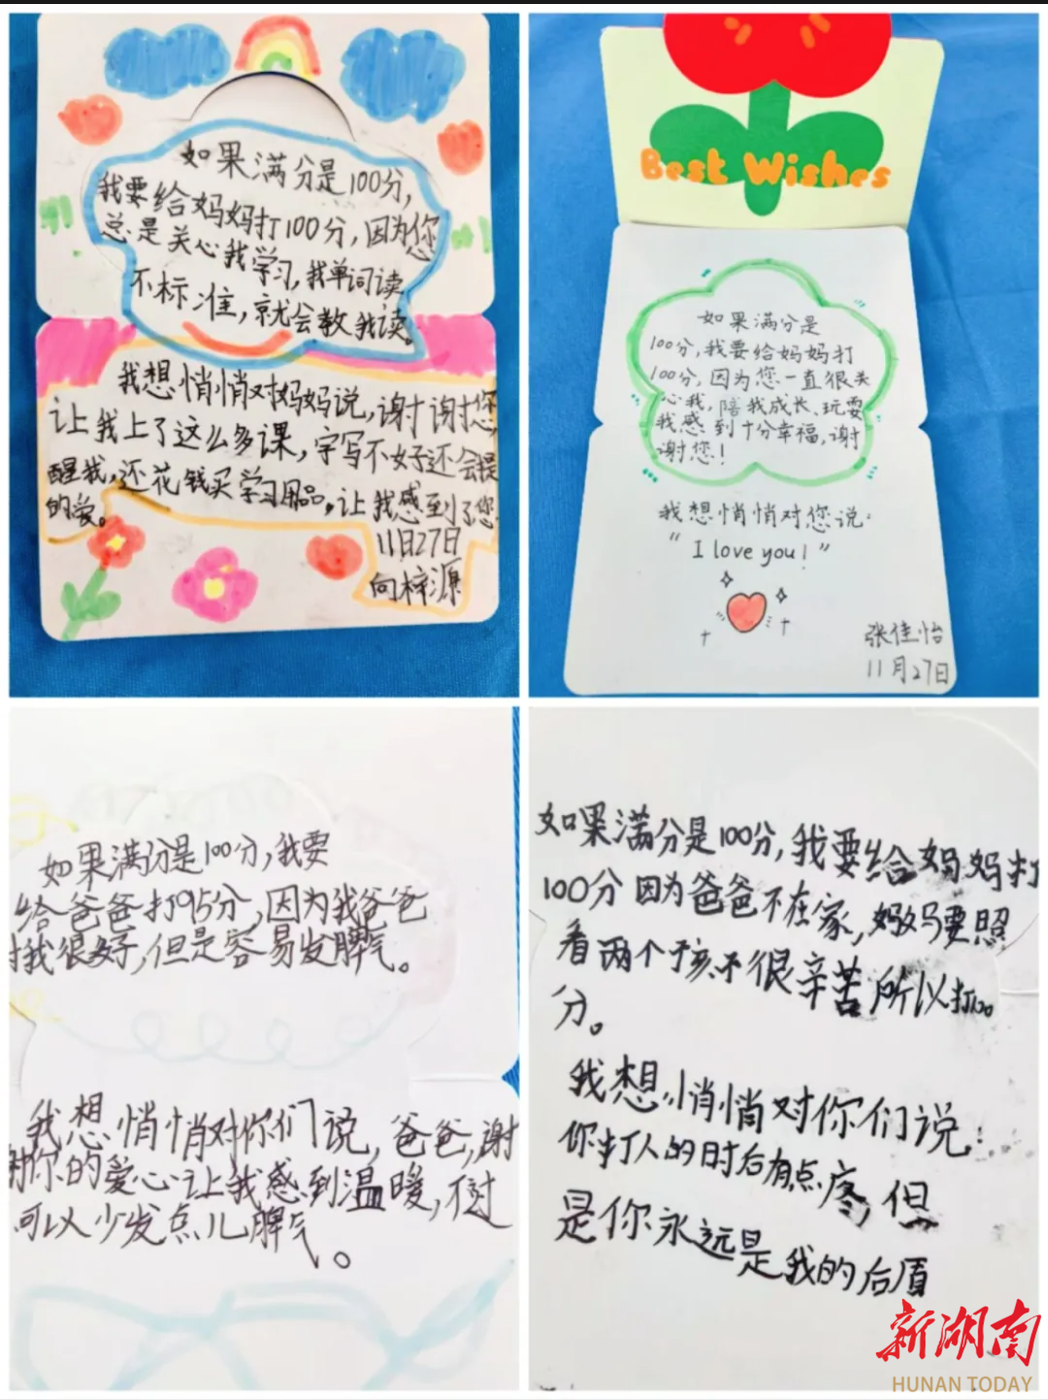 如果满分是100分,
我要给妈妈打100分,因为您
总是关心我学习,我单词读
不标准,就会教我读。
我想悄悄对妈妈说,谢谢您,
让我上了这么多课,字写不好还会提
醒我,还花钱买学习用品,让我感到了您
的爱。
11月27日
向梓源
Best Wishes
如果满分是
100分,我要给妈妈打
100分,因为您一直很关
心我,陪我成长、玩耍
我感到十分幸福,谢
谢您!
我想悄悄对您说:
"I love you!"
张佳怡
11月27日
如果满分是100分,我要
给爸爸打95分,因为我爸爸
对我很好,但是容易发脾气。
我想悄悄对你们说,爸爸,谢
谢你的爱心让我感到温暖,不过
可以少发点儿脾气。
如果满分是100分,我要给妈妈打
100分因为爸爸不在家,妈妈要照
看两个孩子很辛苦所以打100
分。
我想悄悄对你们说:
你打人的时后有点疼,但
是你永远是我的后盾
新湖南
HUNAN TODAY